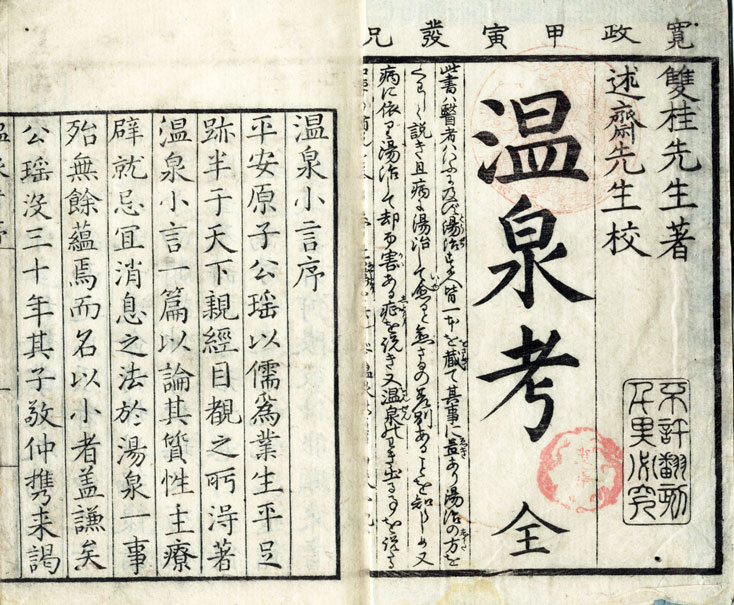 寛政甲寅發兌
雙桂先生著
述齋先生校
不許翻刻
千里必究
温泉考 全
此書ハ醫者ハいふに及バず湯治する人皆一本を蔵て其事に益あり湯治の方を
くわしく説き且病に湯治して愈ると愈ざるの差別あることを知らしめ又
病に依り湯治して却而害ある症を説き又温泉
温泉小言序
平安原子公瑶以儒爲業生平足
跡半于天下親經目覩之所得著
温泉小言一篇以論其質性主療
辟就忌冝消息之法於湯泉一事
殆無餘蘊焉而名以小者盖謙矣
公瑶沒三十年其子敬仲携来謁